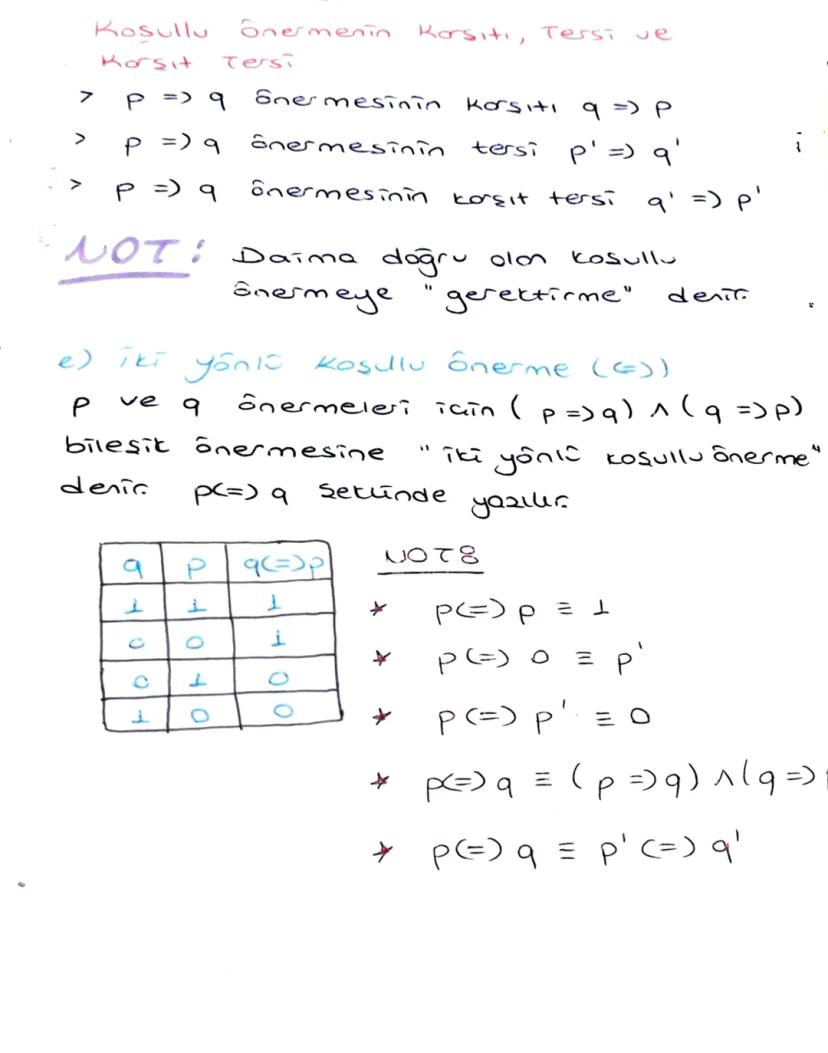 Koşullu önermenin Karşıtı, Tersi ve
Karşıt Tersi
> p => q önermesinin karşıtı q => p
> p => q önermesinin tersi p' => q'
> p => q önermesinin karşıt tersi q' => p'
NOT: Daima doğru olan koşullu
önermeye "gerektirme" denir.
e) İki yönlü koşullu önerme (<=>)
p ve q önermeleri için (p => q) ∧ (q => p)
bileşik önermesine "iki yönlü koşullu önerme"
denir. p<=> q şeklinde yazılır.
q p q<=>p
1 1 1
0 0 1
0 1 0
1 0 0
NOT:
* p<=> p ≡ 1
* p<=> 0 ≡ p'
* p<=> p' ≡ 0
* p<=> q ≡ (p => q) ∧ (q =>
* p<=> q ≡ p' <=> q'